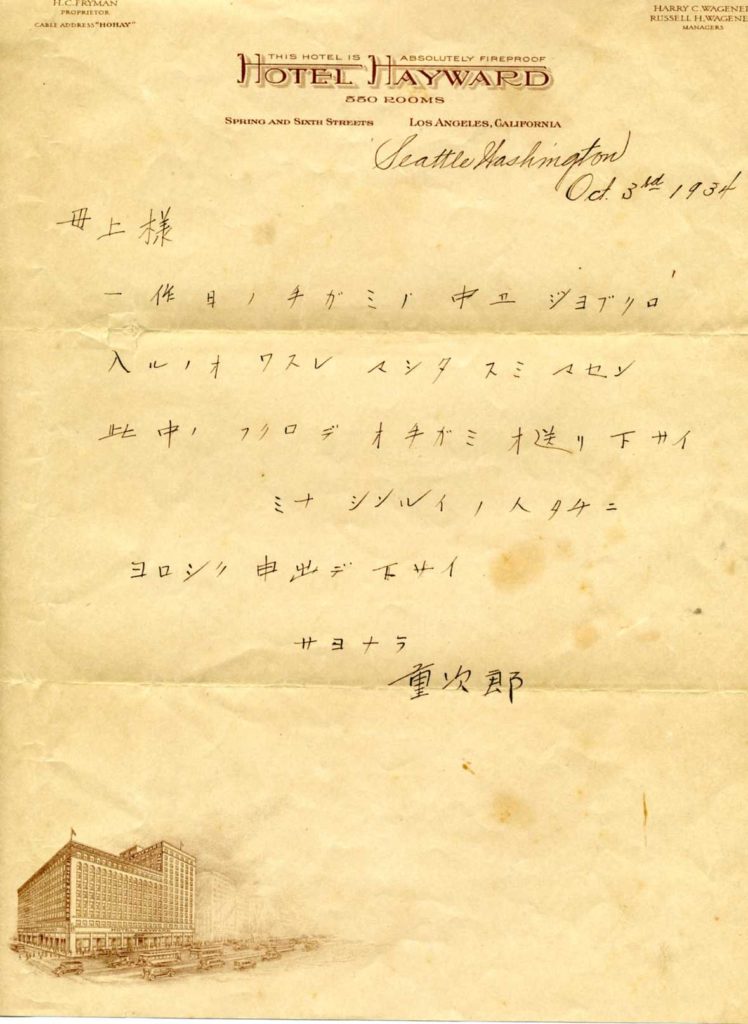 H.C. FRYMAN
PROPRIETOR
CABLE ADDRESS "HOHAY"
HARRY C. WAGENER
RUSSELL H. WAGENE
MANAGERS
THIS HOTEL IS ABSOLUTELY FIREPROOF
HOTEL HAYWARD
550 ROOMS
SPRING AND SIXTH STREETS LOS ANGELES, CALIFORNIA
Seattle Washington
Oct. 3rd 1934
母上様
一作日ノ手ガミノ中エ ジヨブクロ
入ルノオ ワスレ マシタ スミ マセン
此中ノ フクロデ オ手ガミ オ送リ下サイ
ミナ シンルイノ人タチニ
ヨロシク 申出デ 下サイ
サヨナラ
重次郎